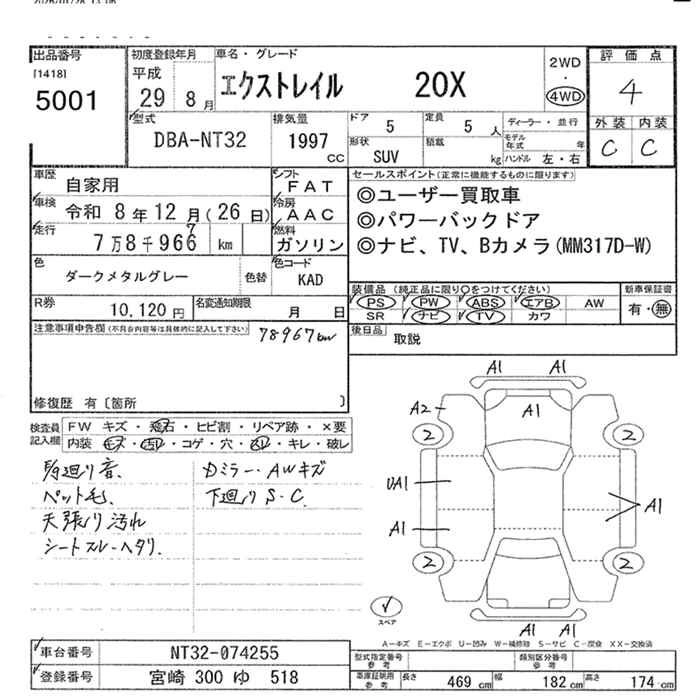 出品番号
[1418]
5001
初度登録年月
平成
29 8 月
車名・グレード
エクストレイル 20X
2WD
・
4WD
評価点
4
外装 内装
C C
型式
DBA-NT32
排気量
1997
CC
ドア
5
定員
5 人
形状
SUV
積載
kg
ディーラー・並行
モデル
年式 年
ハンドル 左・右
車歴
自家用
車検 令和 8年 12月(26日)
走行
7万8千966 km
7
シフト
FAT
冷房
AAC
燃料
ガソリン
セールスポイント(正常に機能するものに限ります)
◎ユーザー買取車
◎パワーバックドア
◎ナビ、TV、Bカメラ(MM317D-W)
色
ダークメタルグレー
色替
色コード
KAD
装備品(純正品に限り○をつけてください)
PS PW ABS エアB AW
SR ナビ TV カワ
新車保証書
有・無
R券
10,120 円
名変通知期限
月 日
後日品
取説
注意事項申告欄(不具合内容等は具体的に記入して下さい)
78967km
修復歴 有〔箇所 〕
検査員
記入欄
FW キズ・飛石・ヒビ割・リペア跡・×要
内装 キズ・汚れ・コゲ・穴・スレ・キレ・破レ
ペット毛.
天張り汚れ
シートスレ・ヘタリ.
Dミラー・AWキズ
下廻りS・C.
A1 A1
A1
A2
2 2
UA1
A1
A1
2 2
A1 A1
スペア
A-キズ E-エクボ U-凹み W-補修跡 S-サビ C-腐食 XX-交換済
車台番号
NT32-074255
登録番号
宮崎 300 ゆ 518
型式指定番号
参考
類別区分番号
参考
車庫証明用
参考
長さ 469 cm 幅 182 cm 高さ 174 cm